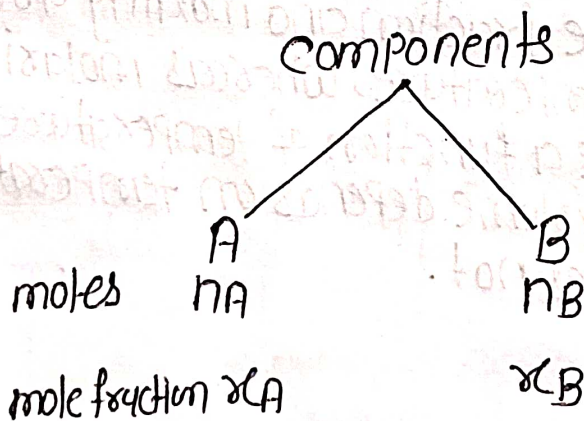 components
A B
moles nA nB
mole fraction xA xB